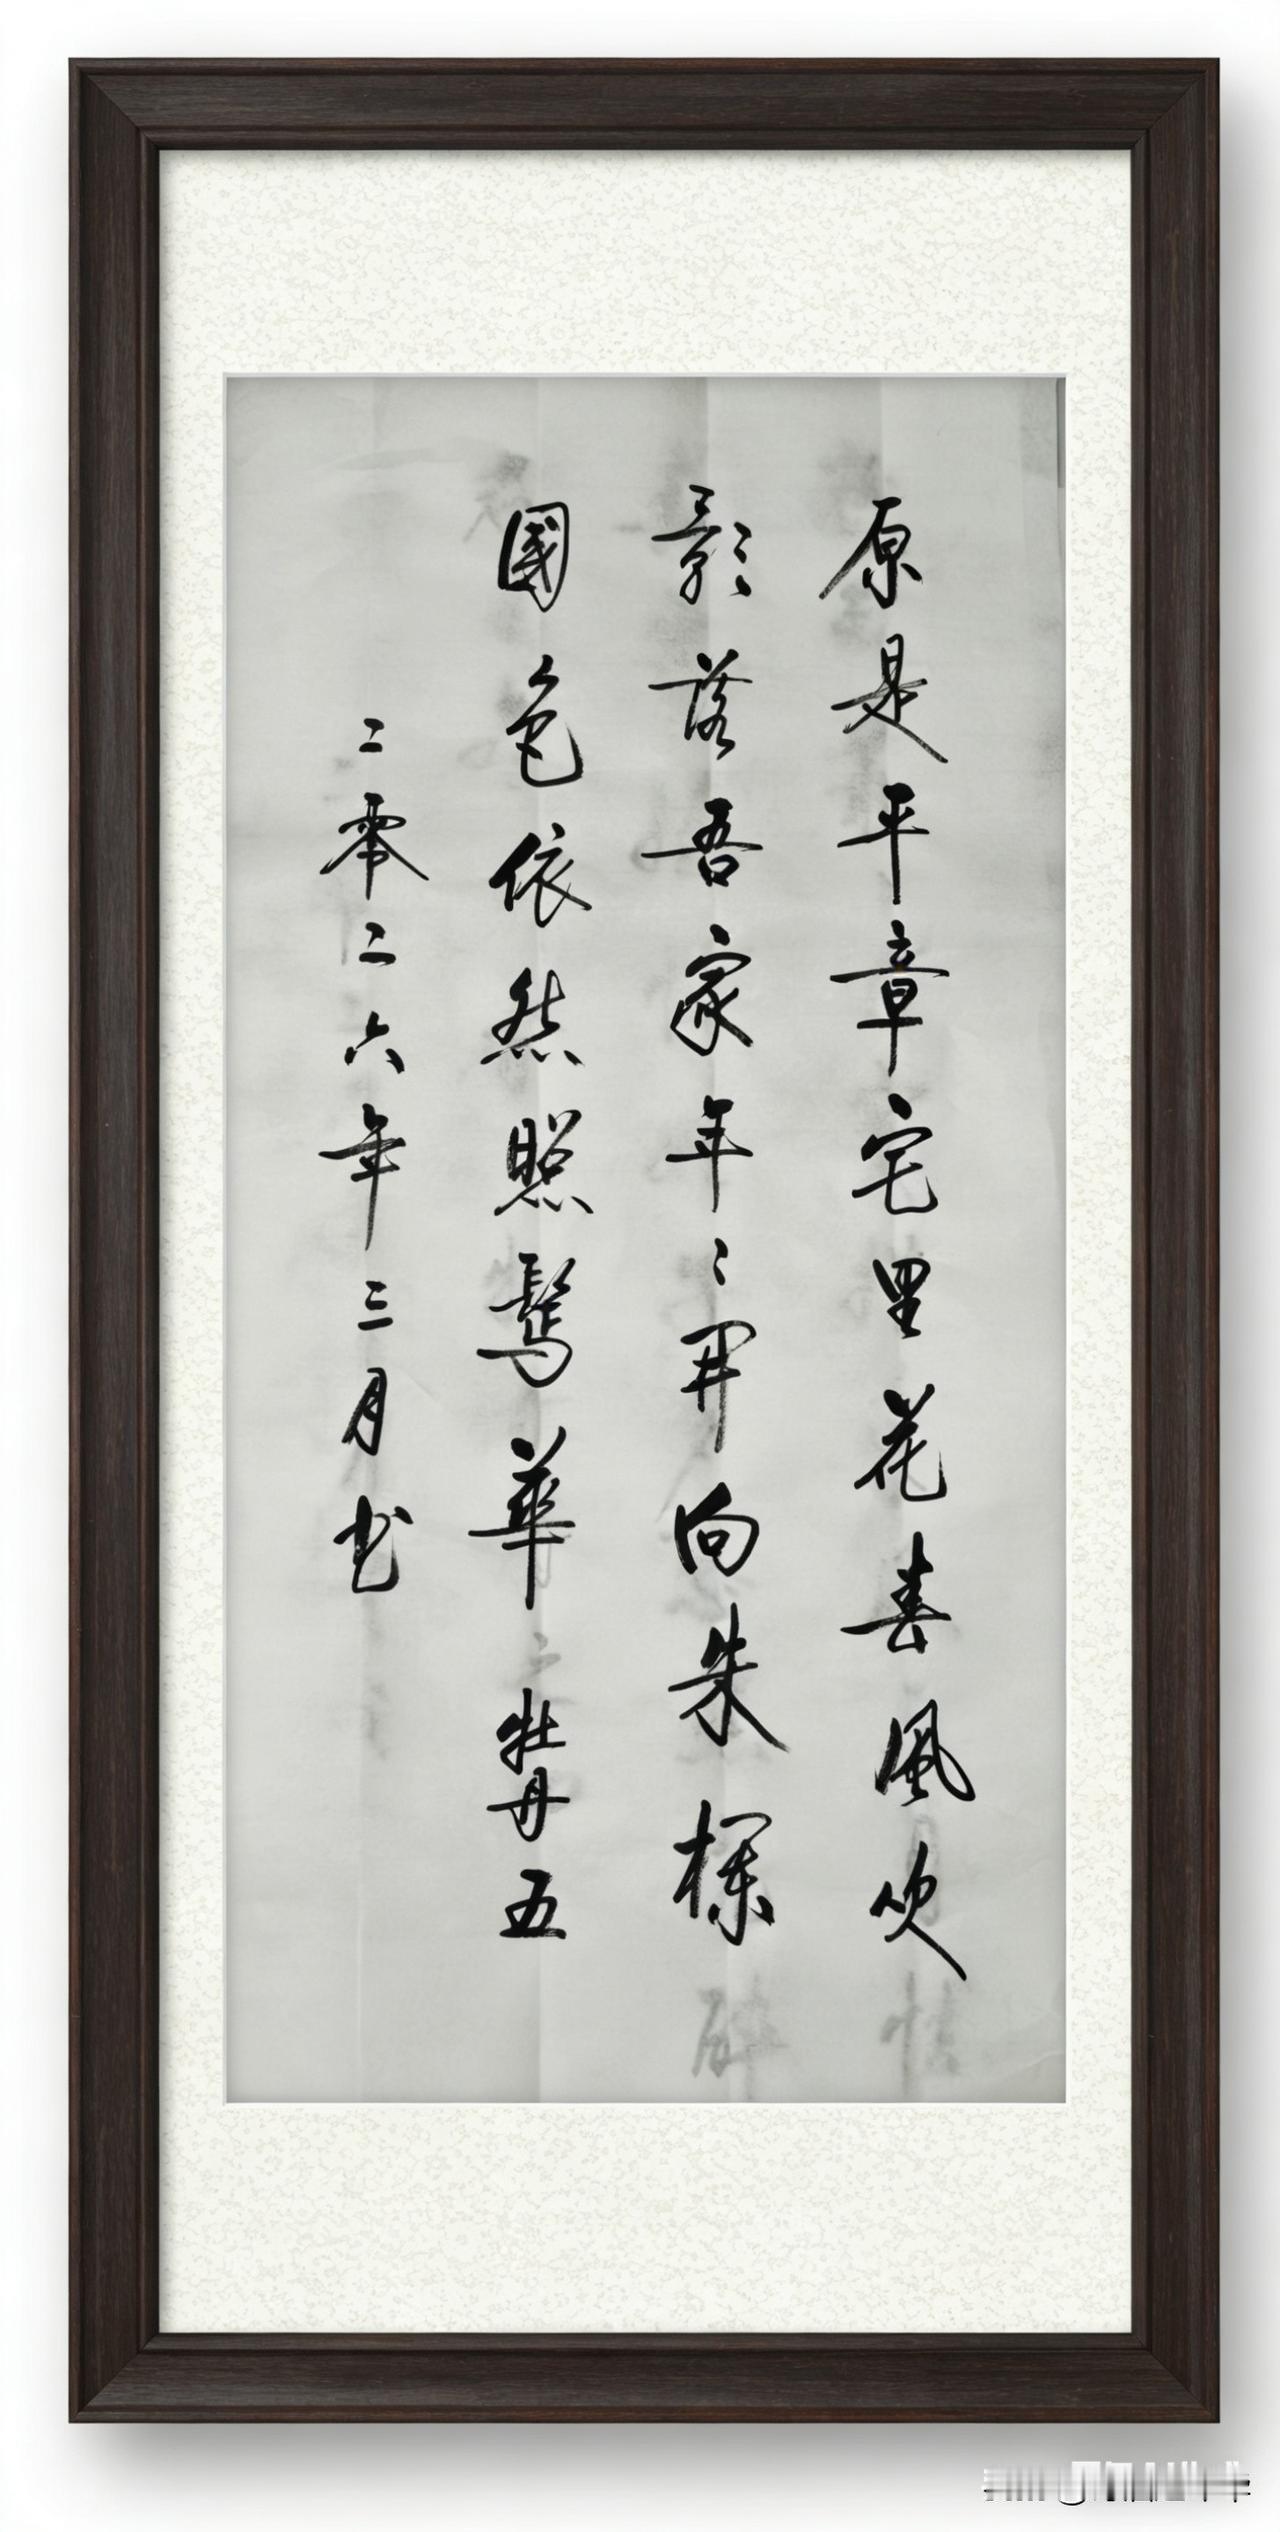 原是平章宅里花春風吹
影落吾家年〻開向朱欄
國色依然照鬢華 牡丹五
二零二六年三月书